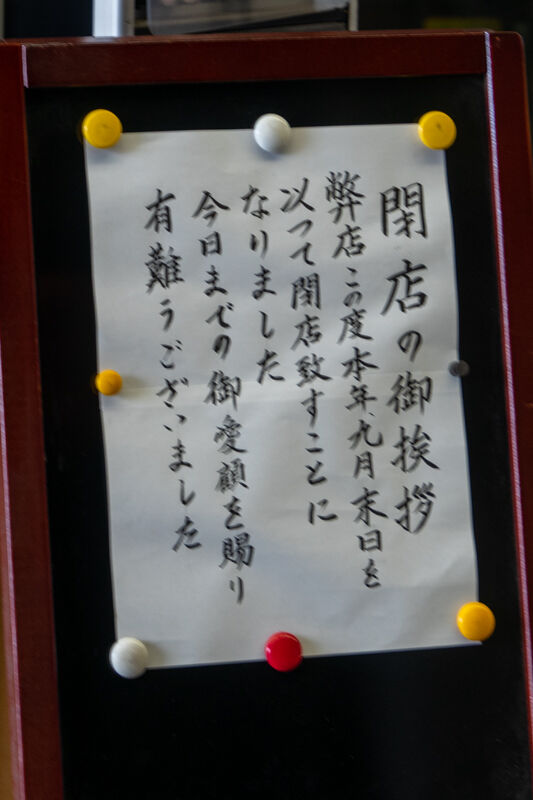 閉店の御挨拶
弊店この度本年、九月末日を
以つて閉店致すことに
なりました
今日までの御愛顧を賜り
有難うございました